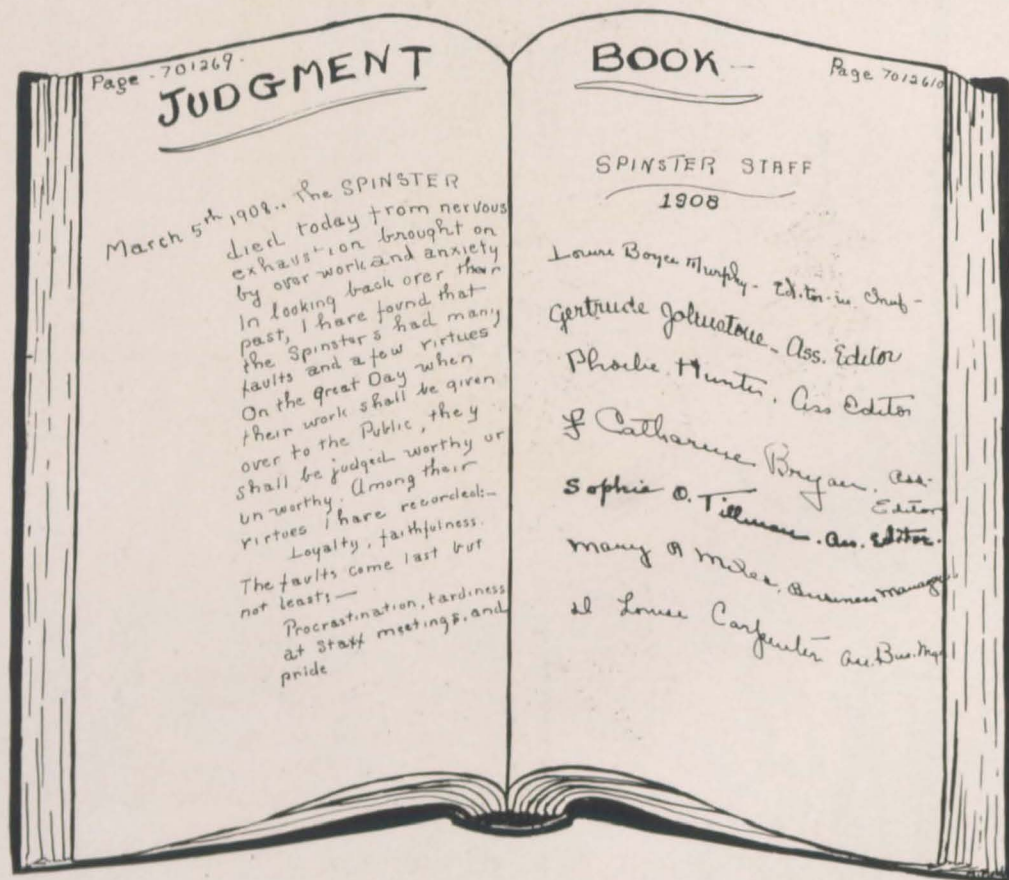 Page - 701269.
JUDGMENT
March 5th 1908.. The SPINSTER
died today from nervous
exhaustion brought on
by over work and anxiety
In looking back over their
past, I have found that
the Spinsters had many
faults and a few virtues
On the great Day when
their work shall be given
over to the Public, they
shall be judged worthy or
un worthy. Among their
virtues I have recorded:-
Loyalty, faithfulness.
The faults come last but
not least:—
Procrastination, tardiness
at Staff meetings, and
pride
BOOK
Page 7012610
SPINSTER STAFF
1908
Louise Boyce Murphy - Editor-in Chief -
Gertrude Johnstone - Ass. Editor
Phoebe Hunter, Ass Editor
F Catharine Bryan, Ass.
Editor
Sophie O. Tillman. Ass. Editor.
Mary A Miles, Business Manager
Louise Carpenter Ass. Bus. Mgr